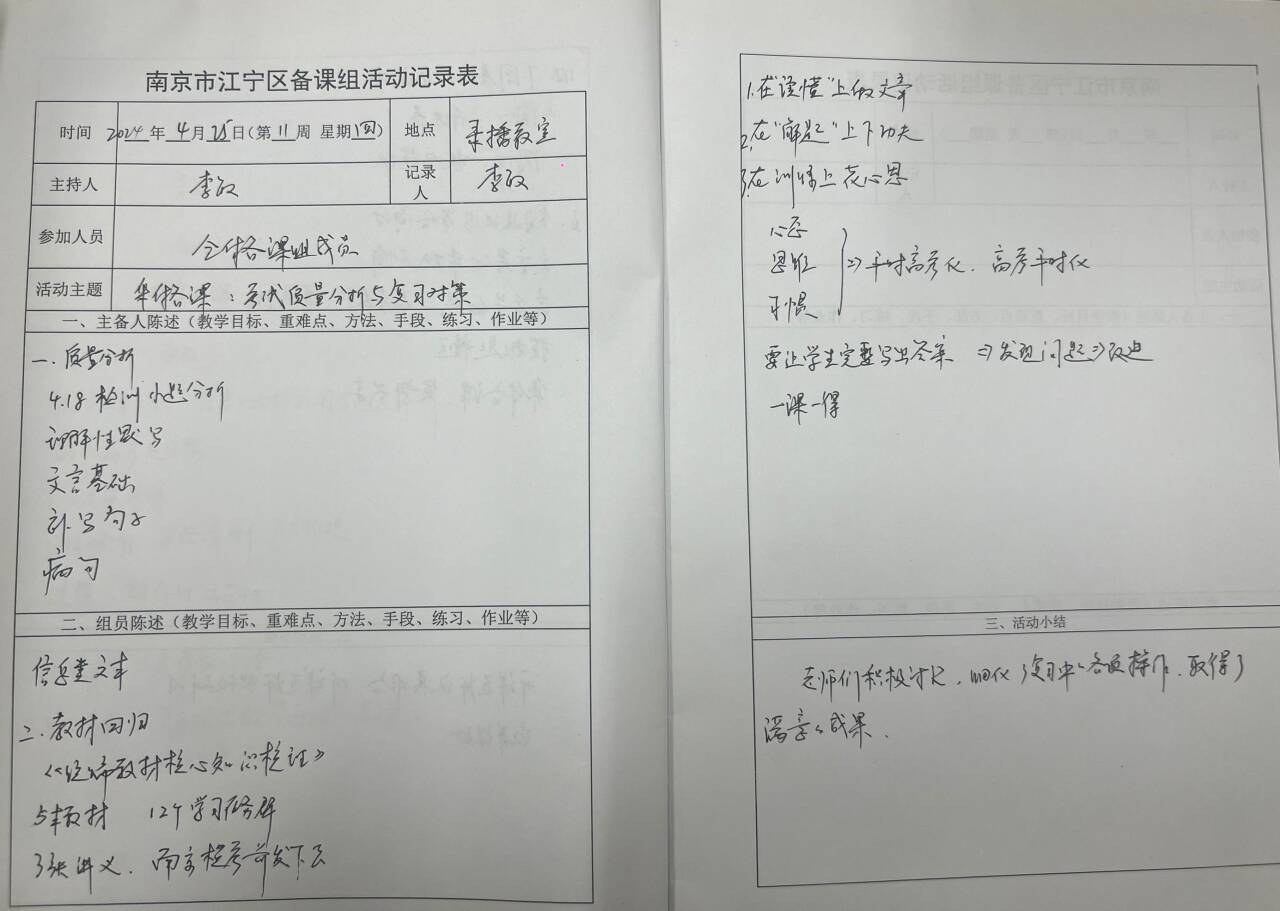 南京市江宁区备课组活动记录表
时间 2024年 4月 25日(第 11 周 星期四) 地点 录播教室
主持人 李 记录人 李
参加人员 全体备课组成员
活动主题 集体备课:考试质量分析与复习对策
一、主备人陈述(教学目标、重难点、方法、手段、练习、作业等)
一.质量分析
4.18 检测小题分析
理解性默写
文言基础
补写句子
病句
二、组员陈述(教学目标、重难点、方法、手段、练习、作业等)
信息类文本
二.教材回归
《统编教材核心知识梳理》
5本教材 12个学习任务群
3张讲义.南京 考前发下去
1.在"读懂"上做文章
2.在"解题"上下功夫
3.在训练上花心思
心态
思维 ⇒ 平时高考化、高考平时化
习惯
要让学生完整写出答案 ⇒发现问题⇒改进
一课一得
三、活动小结
老师们积极讨论,细化了复习中的各项操作.取得了
满意的成果.